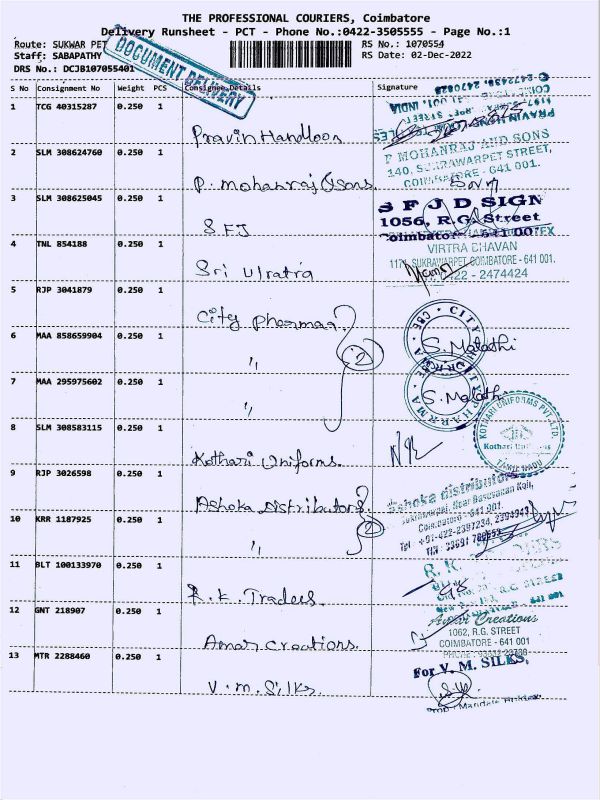 THE PROFESSIONAL COURIERS, Coimbatore
Delivery Runsheet - PCT - Phone No.:0422-3505555 - Page No.:1
Route: SUKWAR PET
RS No.: 1070554
Staff: SABAPATHY
RS Date: 02-Dec-2022
DRS No.: DCJB107055401
DOCUMENT DELIVERY
S No Consignment No Weight PCS Consignee Details Signature
1 TCG 40315287 0.250 1
Pravin Handloom
2 SLM 308624760 0.250 1
P. Mohanraj & Sons.
P MOHANRAJ AND SONS
140, SUKRAWARPET STREET,
COIMBATORE - 641 001.
3 SLM 308625045 0.250 1
SFJ
S F J D SIGN
1056, R.G. Street
Coimbatore - 641 001
4 TNL 854188 0.250 1
Sri
VIRTRA BHAVAN
SUKRAWARPET, COIMBATORE - 641 001.
0422 - 2474424
5 RJP 3041879 0.250 1
City pharmaa
6 MAA 858659904 0.250 1
"
2
S. Malathi
7 MAA 295975602 0.250 1
"
S. Malathi
8 SLM 308583115 0.250 1
Kothari Uniforms.
KOTHARI UNIFORMS PVT.LTD.
Kothari Uniforms
TAMIL NADU
9 RJP 3026598 0.250 1
Ashoka Distributors
Ashoka distributors
10 KRR 1187925 0.250 1
"
2
Coimbatore - 641 001.
Tel : +91-422-2397234, 2394943
11 BLT 100133970 0.250 1
R.K. Traders.
R. K.
12 GNT 218907 0.250 1
Amar Creations.
Creations
1062, R.G. STREET
COIMBATORE - 641 001
13 MTR 2288460 0.250 1
V.M. Silks
For V. M. SILKS,